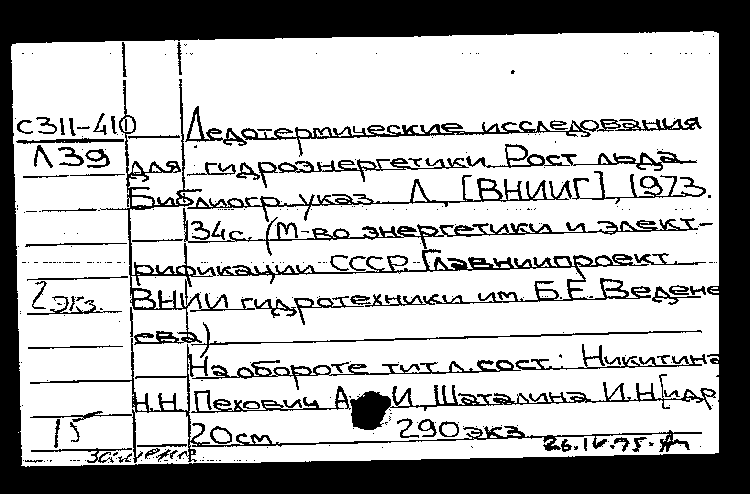 С311-410 Ледотермические исследования
Л39 для гидроэнергетики. Рост льда
Библиогр. указ. Л., [ВНИИГ], 1973.
34с. (М-во энергетики и элект-
рификации СССР. Главниипроект.
2 экз. ВНИИ гидротехники им. Б.Е. Ведене
ева).
На обороте тит. л. сост.: Никитина
Н.Н. Пехович А И., Шаталина И.Н[идр
15 20см. 290экз.
26.IV.75.